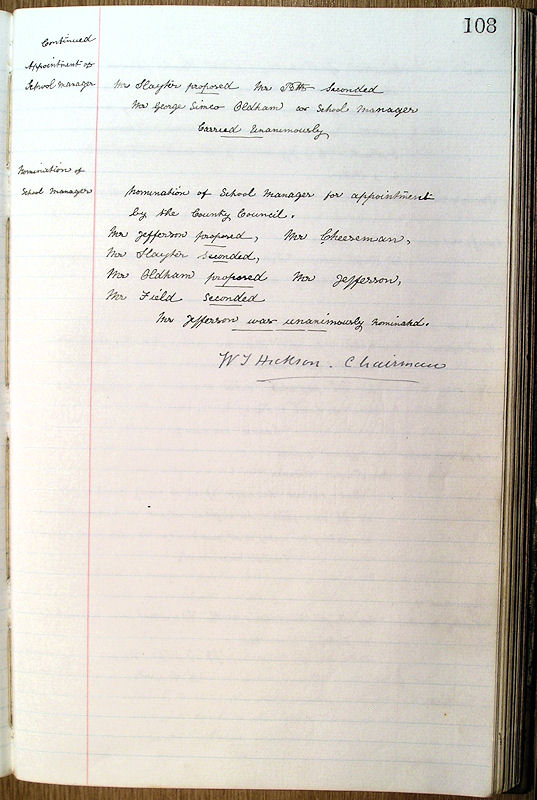 108
Continued
Appointment of
School Manager
Mr Slayter proposed Mr seconded
Mr George Simco Oldham as School Manager
Carried Unanimously
Nomination of
School Manager
Nomination of School Manager for appointment
by the County Council.
Mr Jefferson proposed, Mr Cheeseman,
Mr Slayter seconded,
Mr Oldham proposed Mr Jefferson,
Mr Field seconded
Mr Jefferson was unanimously nominated.
W J Hickson. Chairman